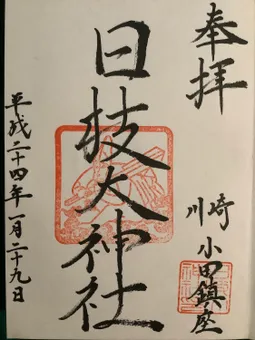 奉拝
川崎 小田鎮座
日枝大神社
平成二十四年一月二十九日